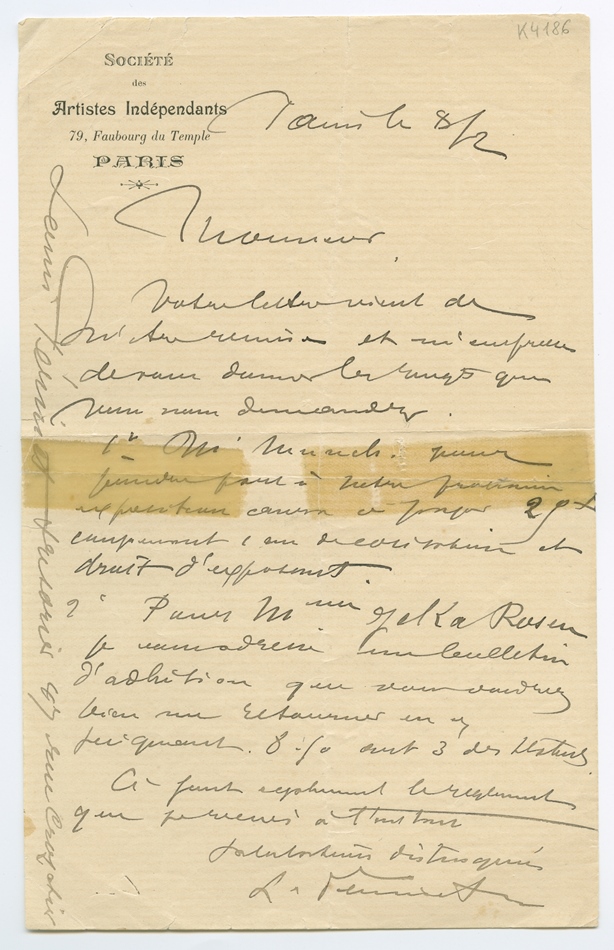 K4186
SOCIÉTÉ
des
Artistes Indépendants
79, Faubourg du Temple
PARIS
Paris le 8/2
Monsieur,
Votre lettre vient de
m'être remise et m'empresse
de vous donner les rengts que
vous nous demandez.
1° Mr Munch. pour
prendre part à notre prochaine
exposition aura à payer 29f
comprenant 1 an de cotisation et
droit d'exposant.
2° Pour Mme Jelka Rosen
je vous adresse un bulletin
d'adhésion que vous voudrez
bien me retourner en y
joignant. 8.50 art 3 des Statuts
Ci joint également le règlement
Salutations distinguées
Louis trésorier 47 rue